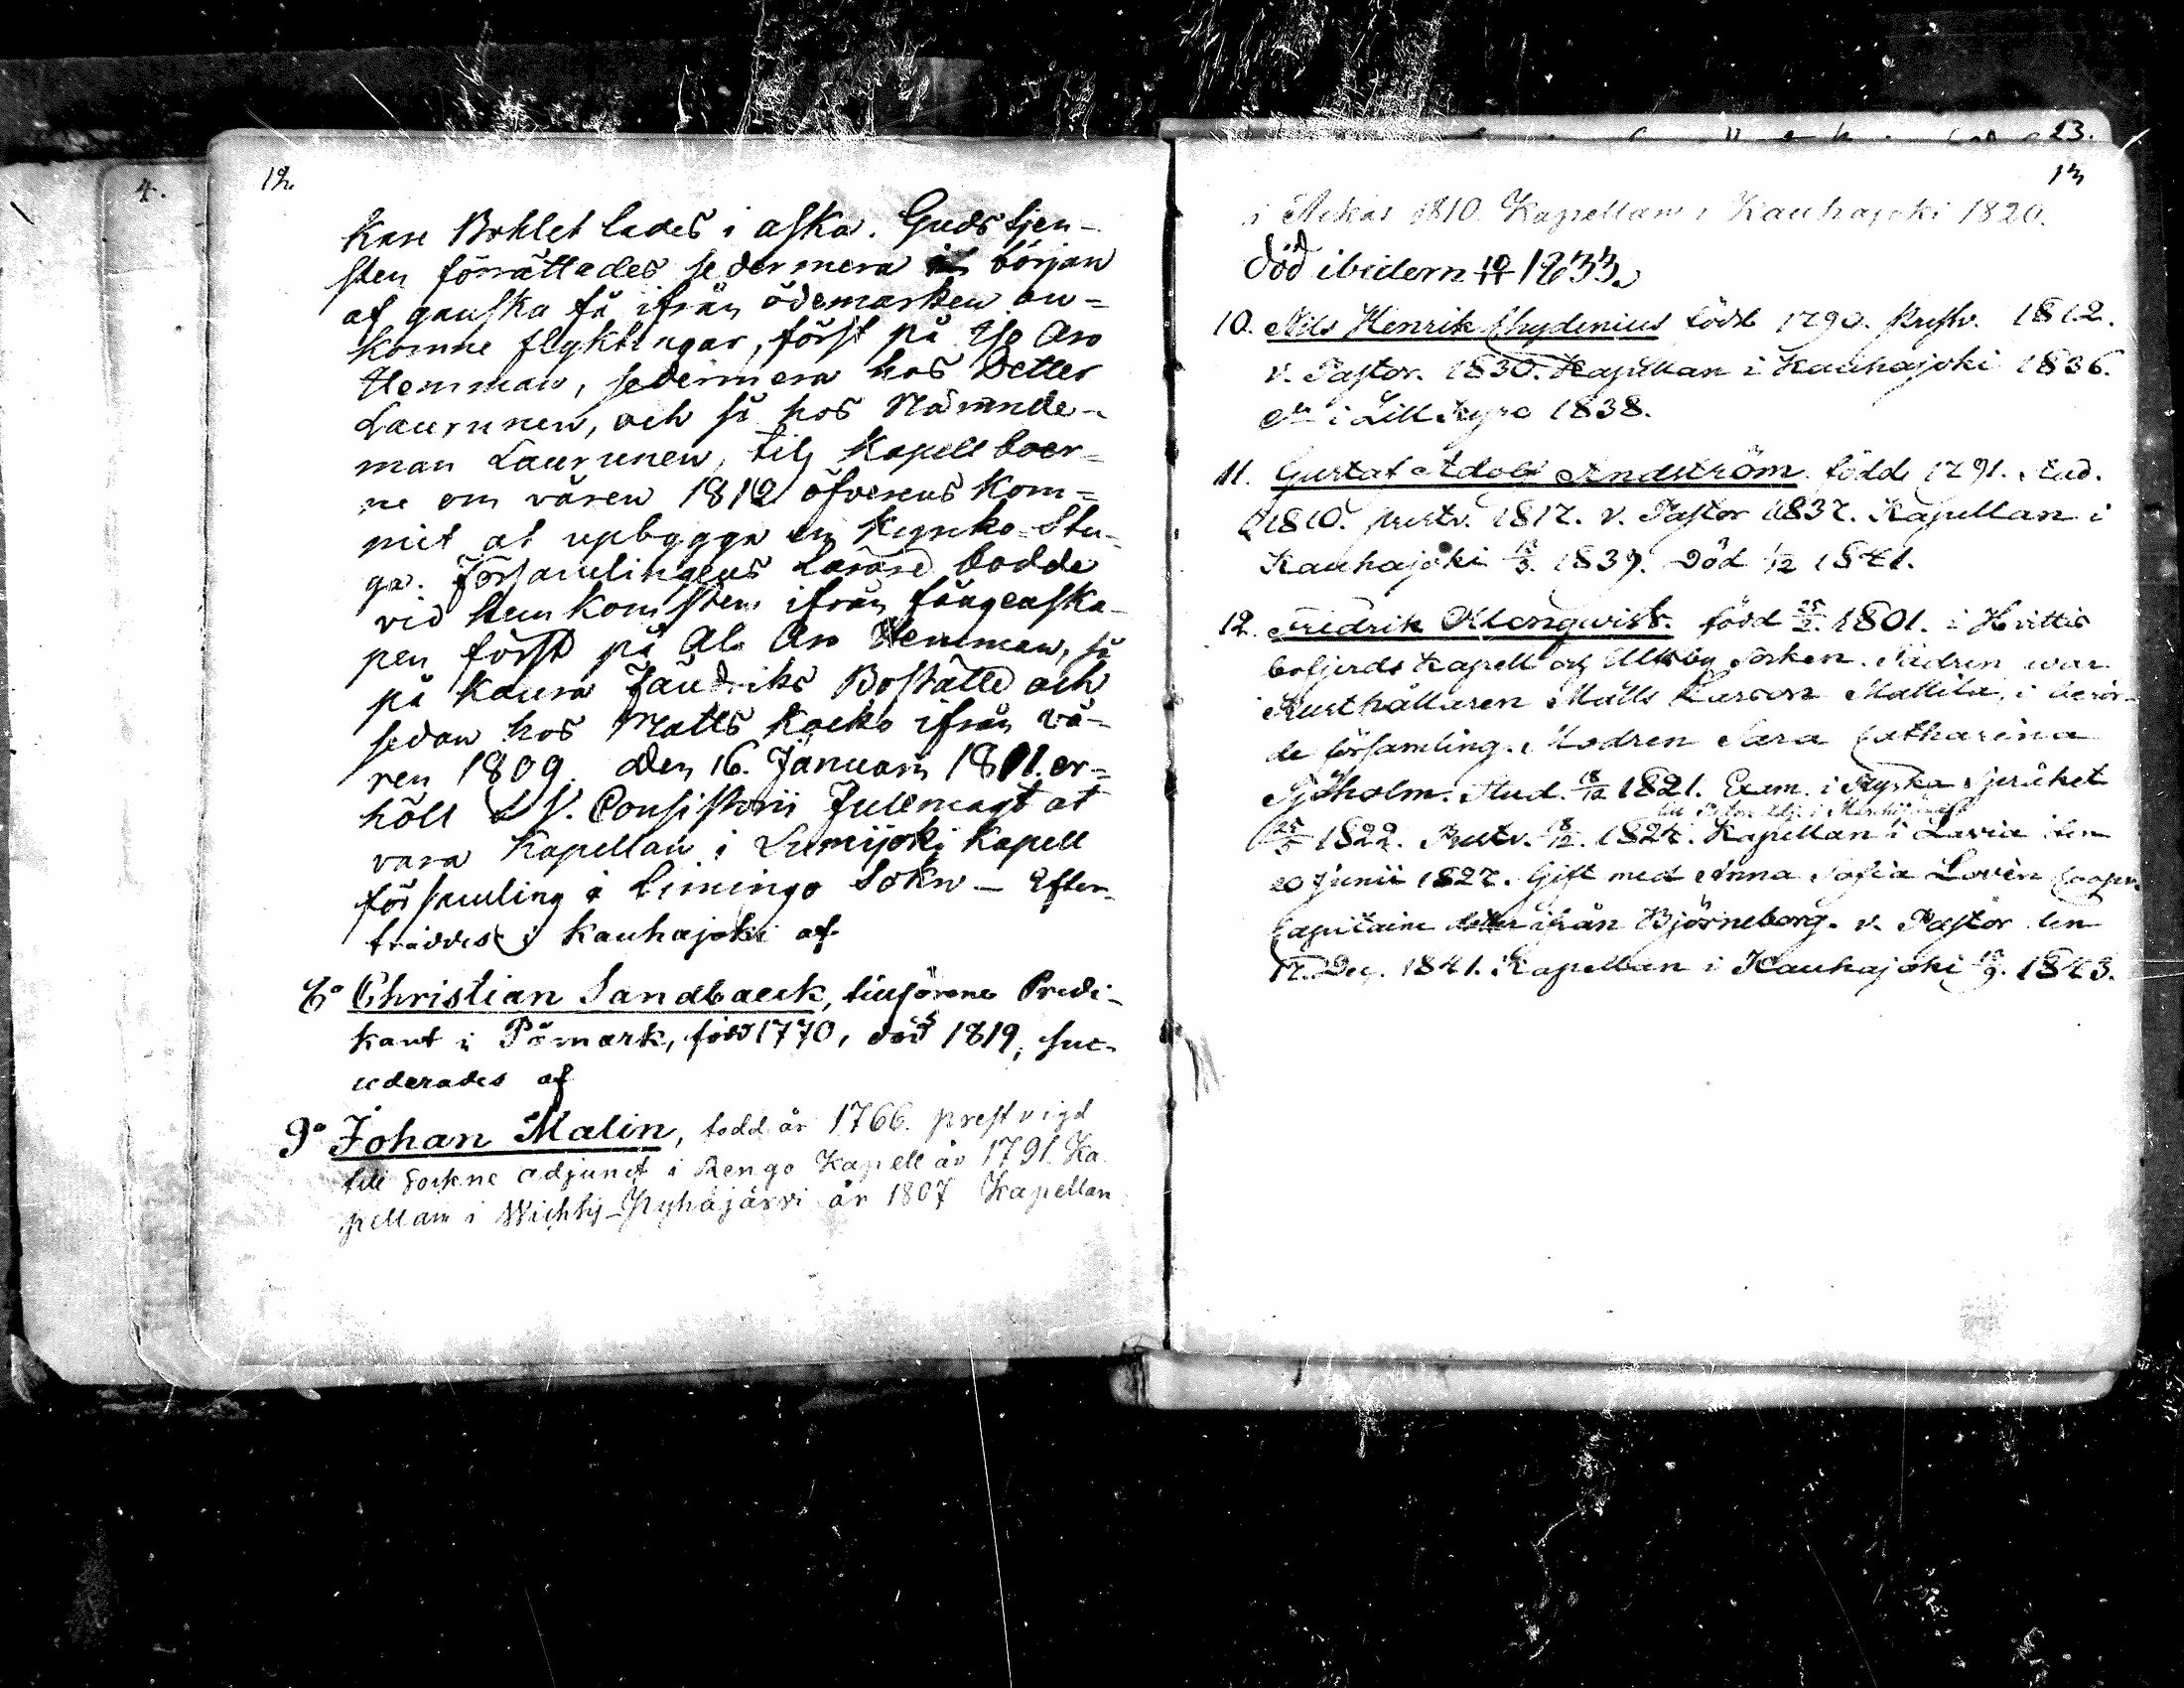 4.
12.
kare Bohlet lades i aska. Gudstjen-
sten förrättades sedermera i början
af ganska få ifrån ödemarken an=
komne flyktingar, först på Yso Aro
Hemman, sedermera hos Detler
Laurunen, och så hos Nämnde-
man Laurunen, tils Kapellboer-
ne om våren 1812 öfverens kom=
mit at upbygga en Kyrko-Stu-
ga. Församlingens Lärare bodde
vid hemkomsten ifrån fångenska-
pen först på Ala Aro Hemman, så
på Kaura Jaudriks Boställe och
sedan hos Matts Kocko ifrån vå-
ren 1809. Den 16. Januarii 1811. er=
hölt V. Consistorii Fullmagt at
vara Kapellan i Lumijoki Kapell
församling i Limingo Sokn — Efter-
träddes i Kauhajoki af
Christian Sandbaeck, tillförene Predi-
kant i Påmark, född 1770, död 1819, suc-
cederades af
9° Johan Malin, född år 1766. prestvigd
till Sockne adjunct i Rengo Kapell år 1791. Ka
pellan i Wichty-Pyhäjärvi år 1807 Kapellan
23.
13
i 1810. Kapellan i Kauhajoki 1820.
död ibidem 10/11 1833.
10. Nils Henrik Chydenius född 1790. Prestv. 1812.
v. Pastor. 1830. Kapellan i Kauhajoki 1836.
d:o i Lill Kyro 1838.
11. Gustaf Adolf Andström född 1791. Stud.
1810. prestv. 1817. v. Pastor 1837. Kapellan i
Kauhajoki 1839. Död 1/12 1841.
12. Fredrik Alonqvist. född 25/2. 1801. i Hvittis
bofjerds Kapell och Ulfsby Socken. Fadren war
Rusthållaren Matts Larsson Mattila, i berör-
de församling. Modren Sara Catharina
Sjöholm. Stud. 18/12 1821. Exam. i Ryska språket
25/5 1822. Prestv. 18/12. 1824. Kapellan i Lavia den
20 Junii 1827. Gift med Anna Sofia Lovén
Capitaine dotter ifrån Björneborg. v. Pastor den
17. Dec. 1841. Kapellan i Kauhajoki 1843.